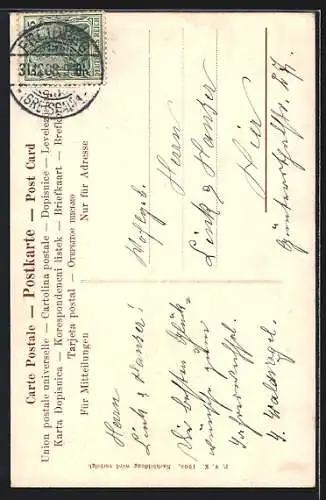 Carte Postale — Postkarte — Post Card
Union postale universelle — Cartolina postale — Dopisnice — Levelezö
Karta Dopisnica — Korespondencni listek — Briefkaart — Brefkort
Tarjeta postal — Открытое письмо
Für Mitteilungen
Nur für Adresse
Herrn
Link & Hanser!
Die besten Glück-
wünsche zum
Jahreswechsel.
Wohlgeb.
Herren
Link & Hanser
Hier
Günterstalstr.
FREIBURG
(BREISGAU)
P. V. K. Z. Nachbildung wird verfolgt.